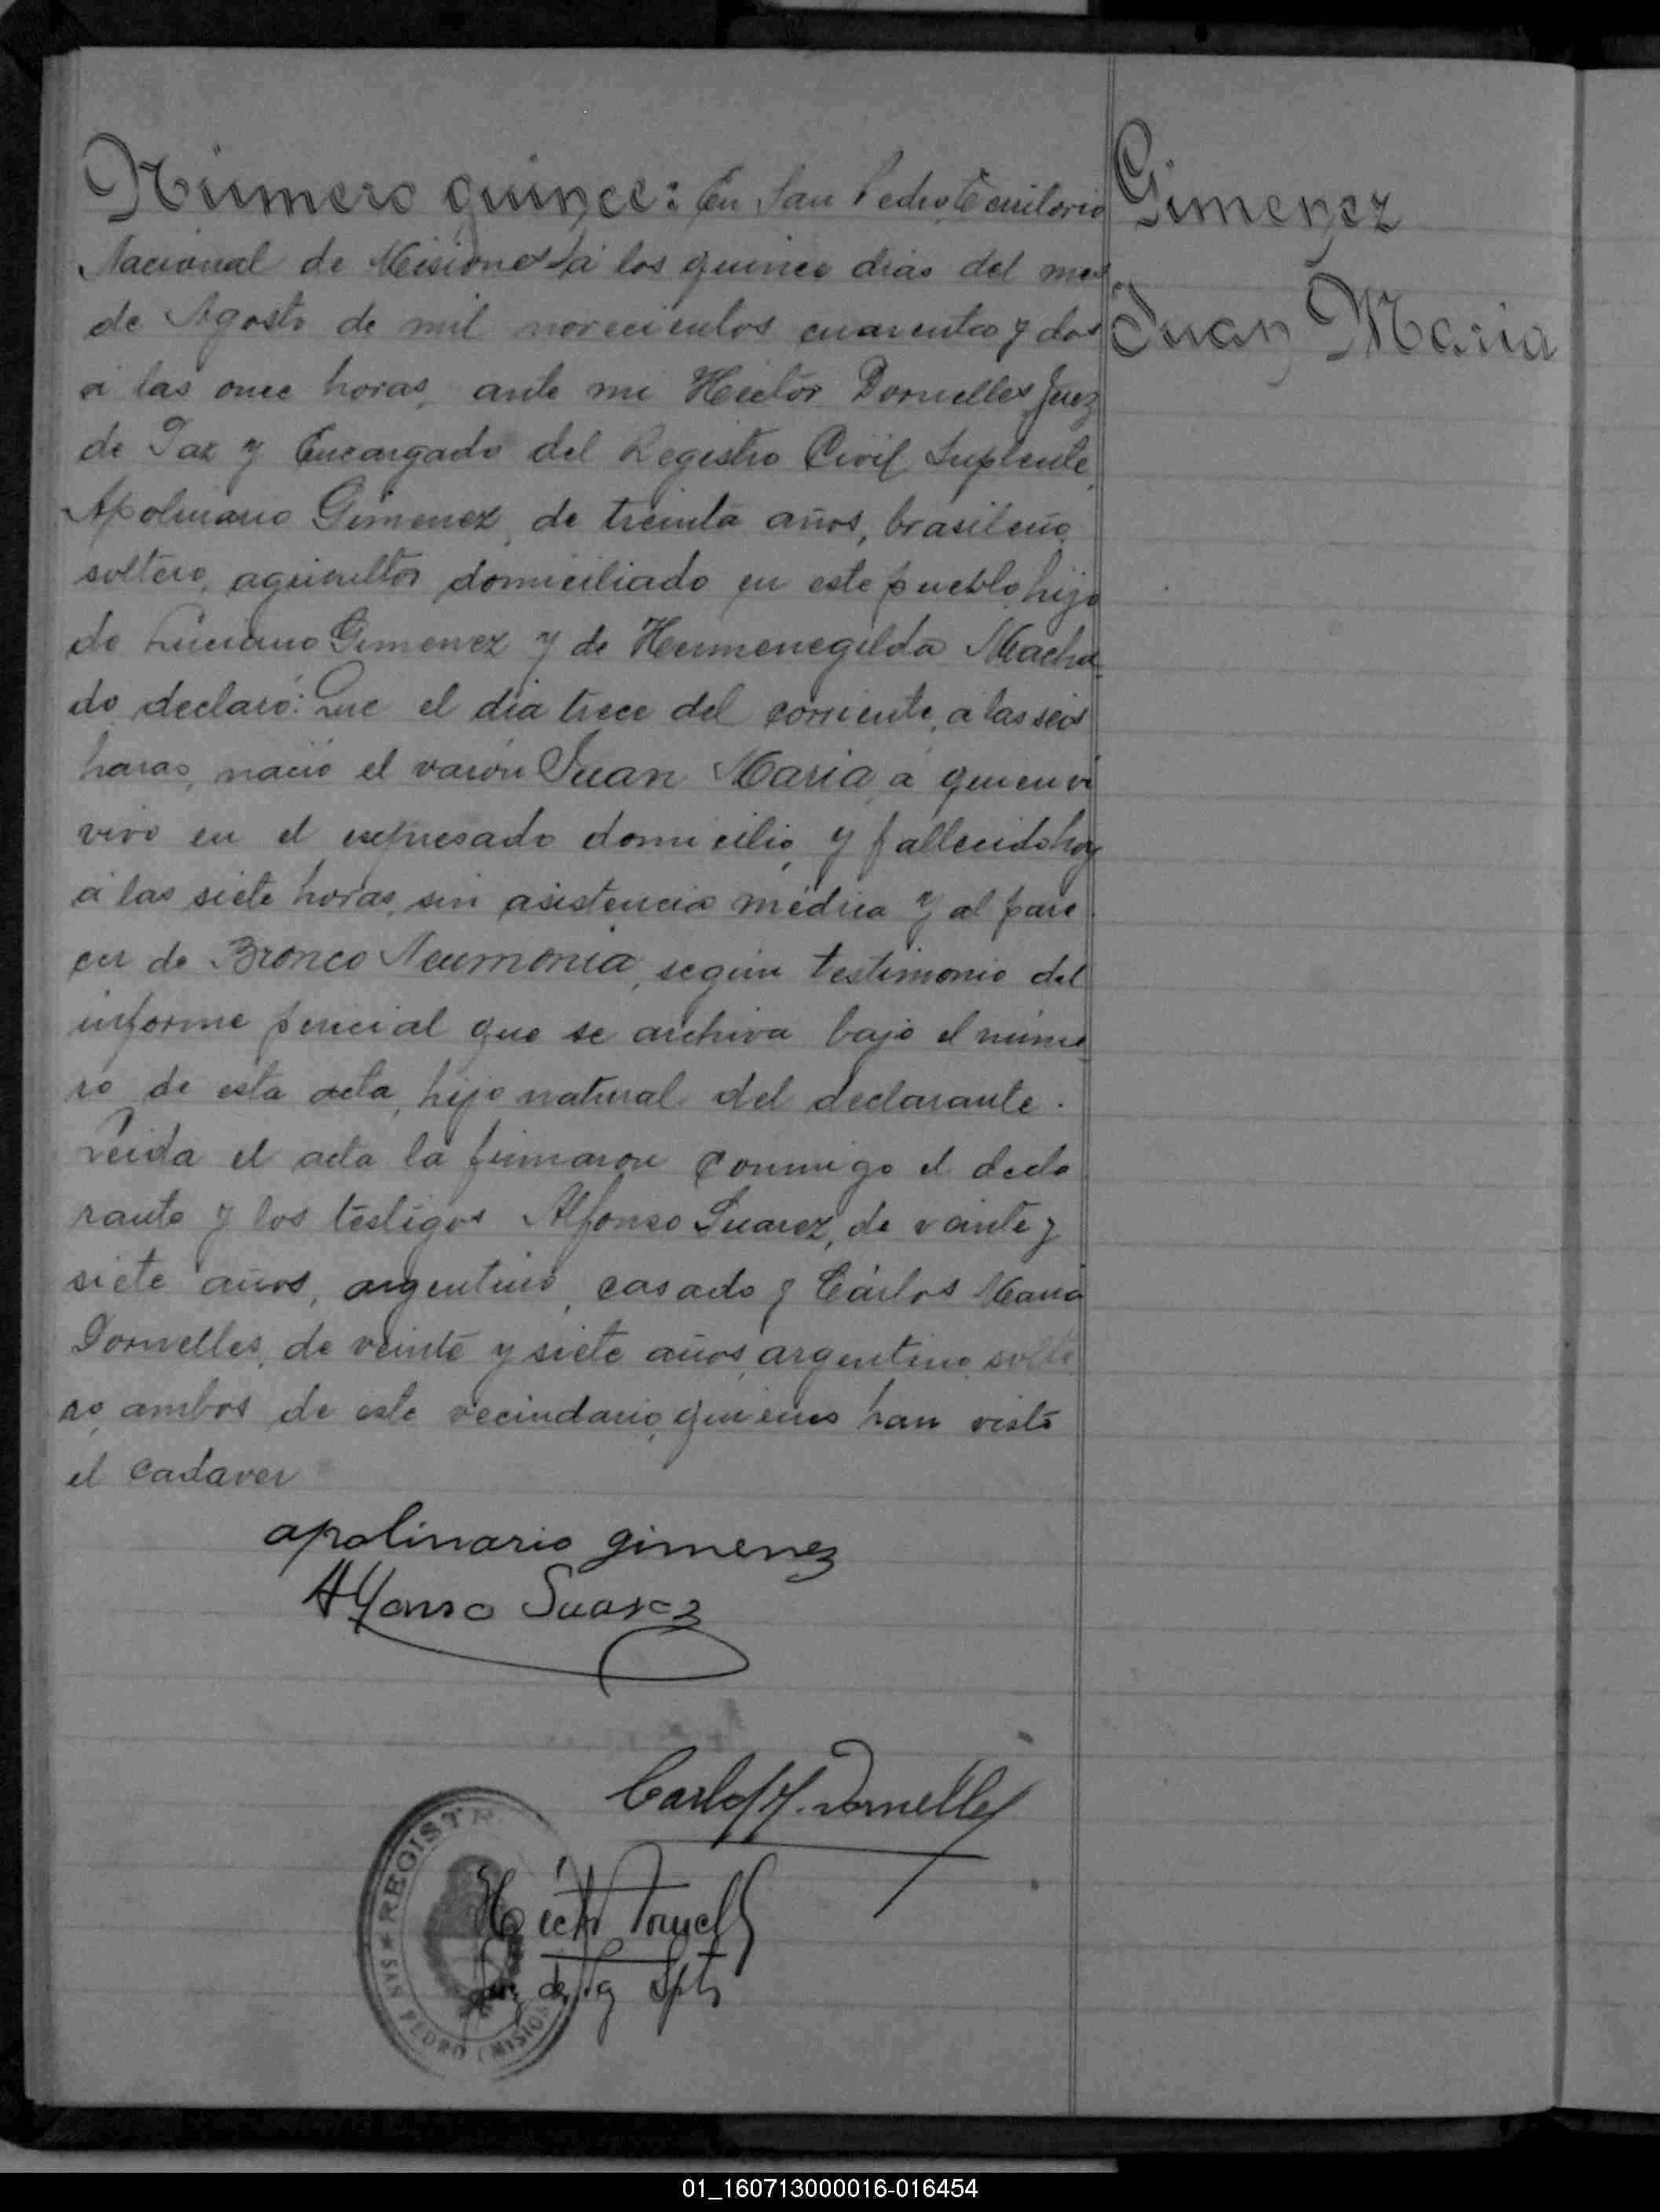 Número quince: En San Pedro, Territorio
Gimenez
Nacional de Misiones á los quince dias del mes
Juan Maria
de Agosto de mil novecientos cuarenta y dos
á las once horas, ante mi Héctor Dornelles Juez
de Paz y Encargado del Registro Civil Suplente,
Apolinario Gimenez, de treinta años, brasileño,
soltero, agricultor domiciliado en este pueblo, hijo
de Luciano Gimenez y de Hermenegilda Macha
do, declaró: Que el dia trece del corriente, a las seis
horas, nació el varón Juan Maria, a quien vi
vivo en el expresado domicilio, y fallecido hoy
á las siete horas, sin asistencia médica y al pare
cer de Bronco Neumonia, según testimonio del
informe pericial que se archiva bajo el núme
ro de esta acta, hijo natural del declarante.
Leida el acta la firmaron conmigo el decla
rante y los testigos Alfonso Suarez, de veinte y
siete años, argentino, casado y Cárlos Maria
Dornelles, de veinte y siete años, argentino, solte
ro, ambos de este vecindario, quienes han visto
el cadaver
apolinario gimenez
Alfonso Suarez
Carlos M. Dornelles
Héctor Dornelles
Juez de Paz Splte
★ REGISTR
SAN PEDRO (MISION
01_160713000016-016454